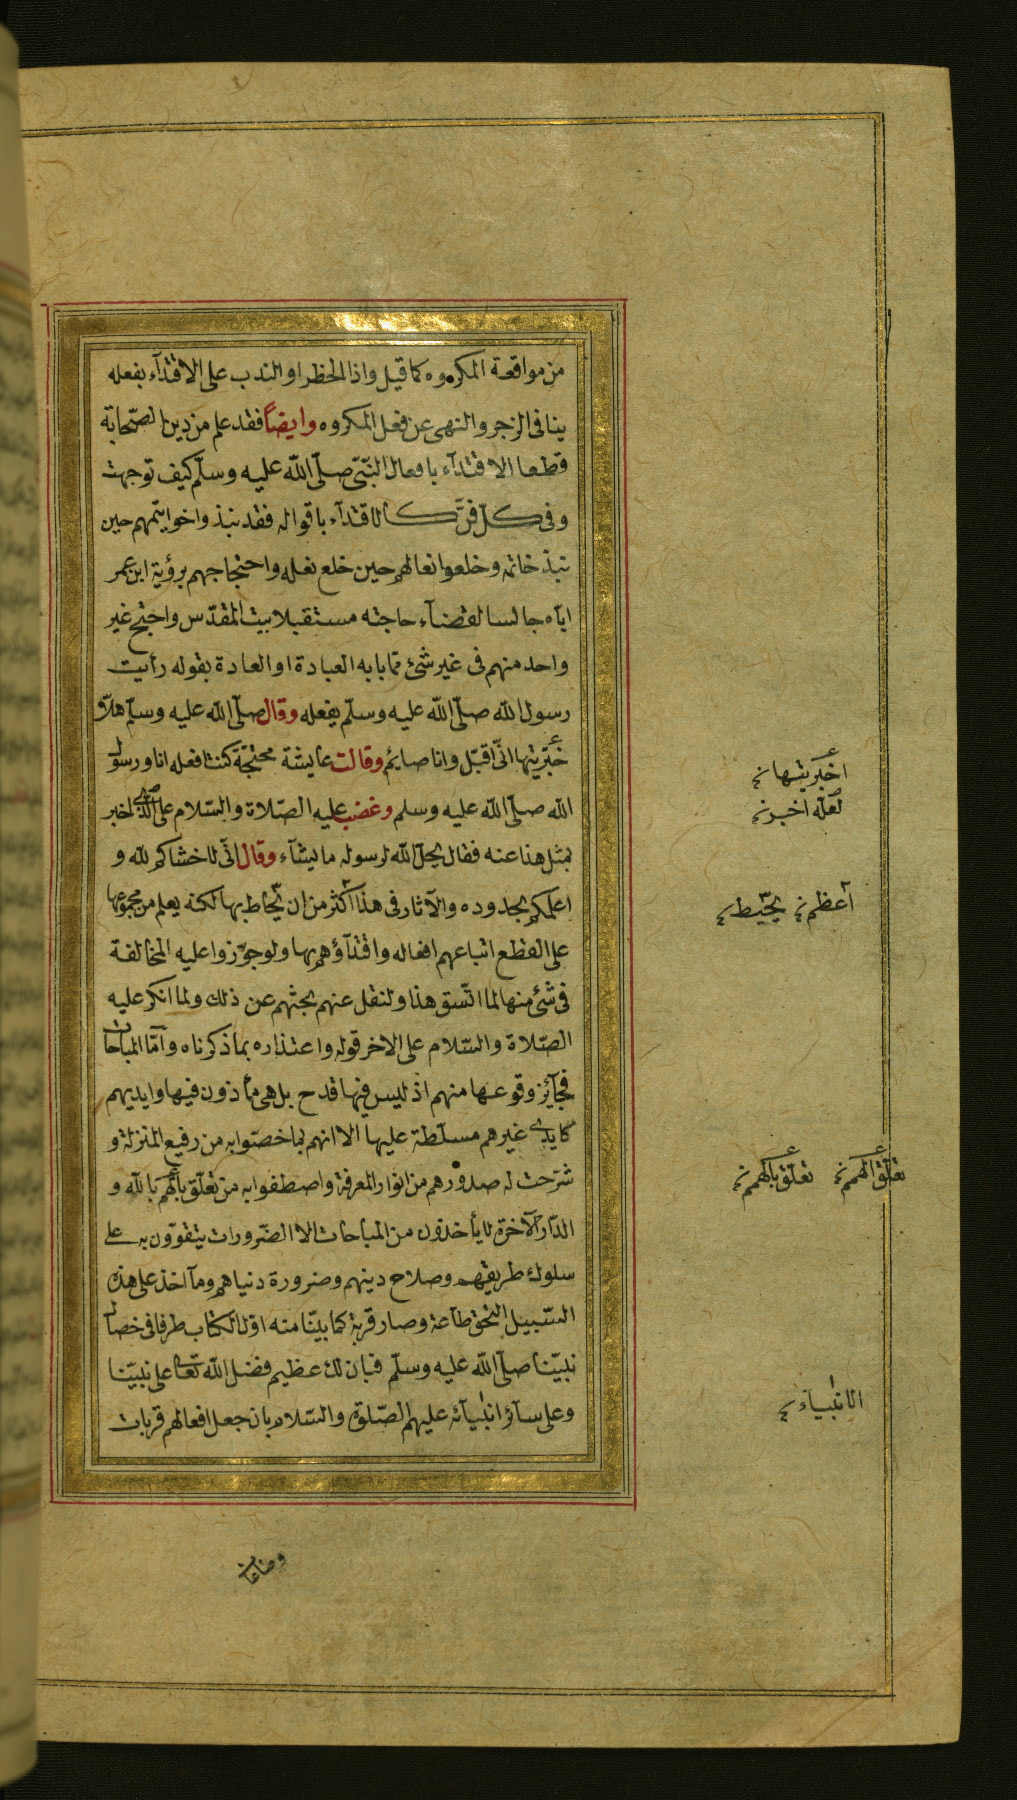 من مواقعة المكروه كما قيل واذ الحظر او الندب على الاقتدآء بفعله
ينافى الزجر والنهى عن فعل المكروه وايضاً فقد علم من دين الصّحابة
قطعا الاقتدآء بافعال النّبىّ صلّى اللّه عليه وسلّم كيف توجهت
وفى كلّ فنّ كالاقتدآء باقواله فقد نبذوا خواتيمهم حين
نبذ خاتمه وخلعوا نعالهم حين خلع نعله واحتجاجهم برؤية ابن عمر
ايّاه جالسا لقضآء حاجته مستقبلا بيت المقدّس واحتجّ غير
واحد منهم فى غير شئ ممّا بابه العبادة او العادة بقوله رأيت
رسول اللّه صلّى اللّه عليه وسلّم يفعله وقال صلّى اللّه عليه وسلّم هلاّ
خبّريتها انّى اقبّل وانا صايم وقالت عايشة محتجّة كنت افعله انا ورسول
اللّه صلّى اللّه عليه وسلم وغضب عليه الصّلاة والسّلام على الّذى اخبر
بمثل هذا عنه فقال يحلّ اللّه لرسوله ما يشآء وقال انّى لاخشاكم للّه و
اعلمكم بحدوده والآثار فى هذا اكثر من ان يّحاط بها لكنه يعلم من مجموعها
على القطع اتباعهم افعاله واقتدآؤهم بها ولو جوّزوا عليه المخالفة
فى شئ منها لما اتّسق هذا ولنقل عنهم بحثهم عن ذلك ولما انكر عليه
الصّلاة والسّلام على الاخر قوله واعتذاره بما ذكرناه وآمّا المباحات
فجآيز وقوعها منهم اذ ليس فيها قدح بل هى مأذون فيها وايديهم
كايدى غيرهم مسلّطة عليها الا انهم بما خصّوا به من رفيع المنزلة و
شرّحت له صدورهم من انوار المعرفة واصطفوا به من تعلّق بالهم باللّه و
الدّار الآخرة لا يأخذون من المباحات الا الضّرورات يتقوّون به على
سلوك طريقهم وصلاح دينهم وضرورة دنياهم ومآ اخذ على هذه
السّبيل التحق طاعة وصار قربة كما بيّنا منه اوّل الكتاب طرفا فى خصال
نبيّنا صلّى اللّه عليه وسلّم فبان لك عظيم فضل اللّه تعا على نبيّنا
وعلى سآئر انبيآئه عليهم الصّلوة والسّلام بان جعل افعالهم قربات
اخبريتها
لعلّه اخبر
اعظم يحيط
تعلّق الهمم تعلّق بالهمم
الانبياء